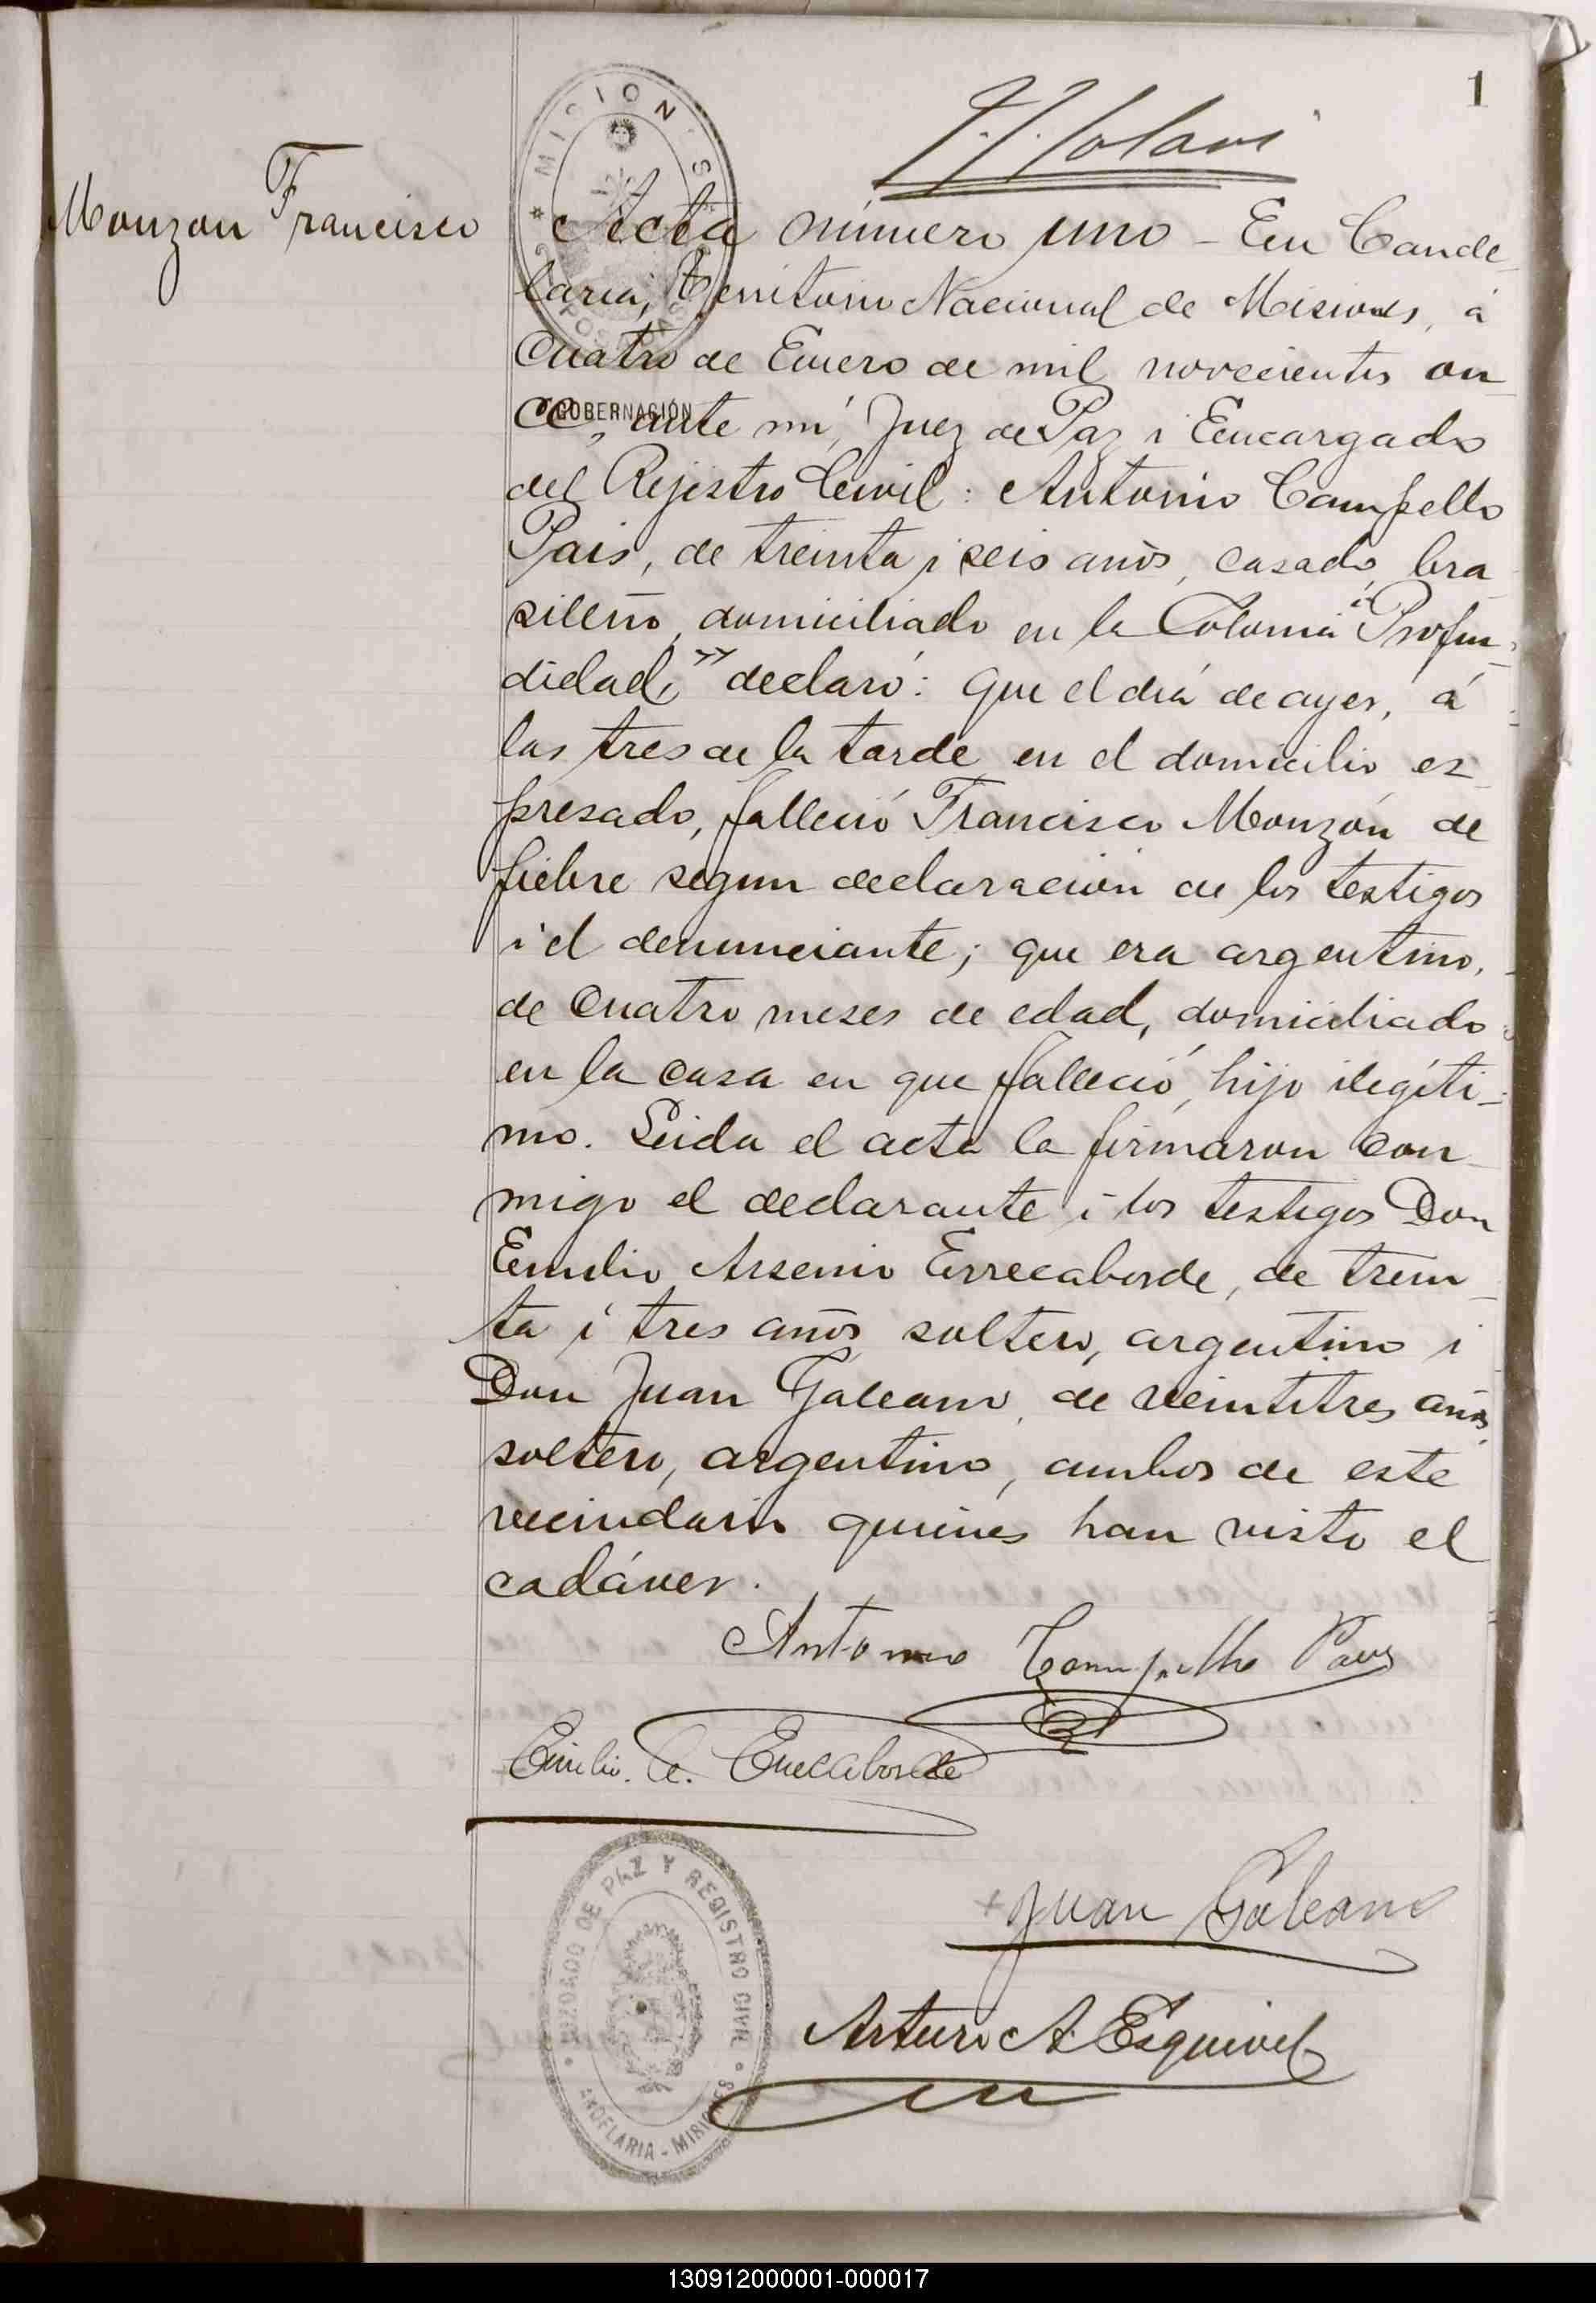 1
Monzon Francisco
MISIONES
POSADAS
GOBERNACIÓN
Acta número uno - En Cande-
laria, Territorio Nacional de Misiones, á
cuatro de Enero de mil novecientos on-
ce, ante mí, Juez de Paz i Encargado
del Rejistro Civil: Antonio Campello
Pais, de treinta i seis años, casado, bra-
sileño, domiciliado en la Colonia "Profun-
didad," declaró: que el día de ayer, á
las tres de la tarde en el domicilio es-
presado, falleció Francisco Monzón de
fiebre segun declaración de los testigos
i el denunciante; que era argentino,
de cuatro meses de edad, domiciliado
en la casa en que falleció, hijo ilegíti-
mo. Leida el acta la firmaron con-
migo el declarante i los testigos Don
Emilio Arsenio Errecaborde, de trein-
ta i tres años, soltero, argentino i
Don Juan Galeano, de veintitres años,
soltero, argentino, ambos de este
vecindario quienes han visto el
cadáver.
Antonio Campello Pais
Emilio A. Errecaborde
Juan Galeano
Arturo A. Esquivel
JUZGADO DE PAZ Y REGISTRO CIVIL
CANDELARIA - MISIONES
130912000001-000017